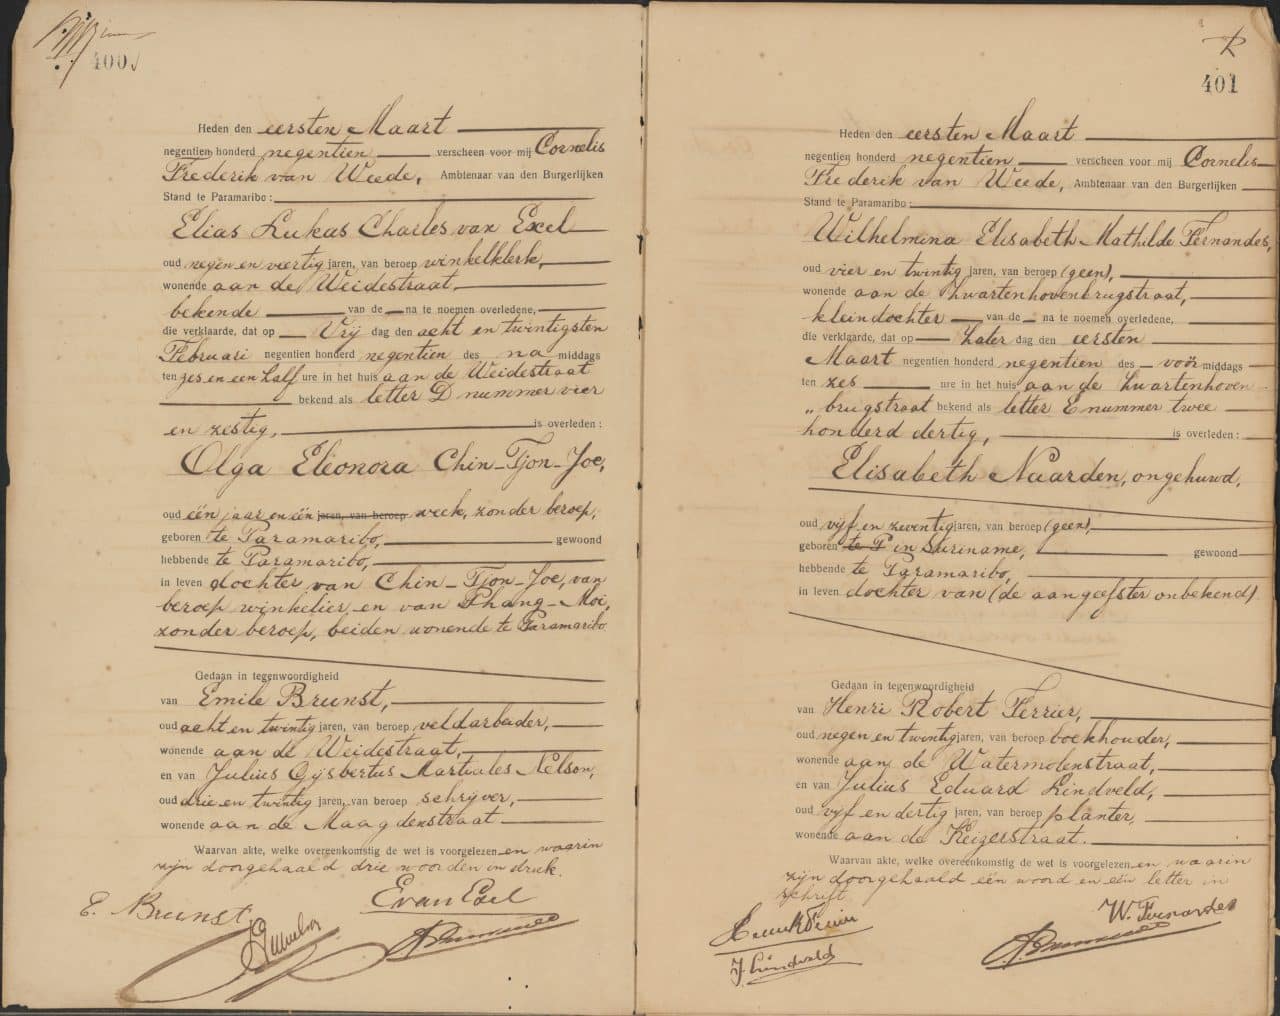 400
Heden den eersten Maart
negentien honderd negentien verscheen voor mij Cornelis
Frederik van Weede, Ambtenaar van den Burgerlijken
Stand te Paramaribo:
Elias Lukas Charles van Exel
oud negen en veertig jaren, van beroep winkelklerk,
wonende aan de Weidestraat,
bekende van de na te noemen overledene,
die verklaarde, dat op Vrij dag den acht en twintigsten
Februari negentien honderd negentien des na middags
ten zes en een half ure in het huis aan de Weidestraat
bekend als letter D nummer vier
en zestig, is overleden:
Olga Eleonora Chin-Tjon-Joe,
oud één jaar en één jaren, van beroep week, zonder beroep,
geboren te Paramaribo, gewoond
hebbende te Paramaribo,
in leven dochter van Chin-Tjon-Joe, van
beroep winkelier en van Phang-Moi,
zonder beroep, beiden wonende te Paramaribo.
Gedaan in tegenwoordigheid
van Emile Brunst,
oud acht en twintig jaren, van beroep veldarbeider,
wonende aan de Weidestraat,
en van Julius Gijsbertus Martiales Nelson,
oud drie en twintig jaren, van beroep schrijver,
wonende aan de Maagdenstraat
Waarvan akte, welke overeenkomstig de wet is voorgelezen en waarin
zijn doorgehaald drie woorden in druk.
E van Exel
E. Brunst
401
Heden den eersten Maart
negentien honderd negentien verscheen voor mij Cornelis
Frederik van Weede, Ambtenaar van den Burgerlijken
Stand te Paramaribo:
Wilhelmina Elisabeth Mathilde Fernandes,
oud vier en twintig jaren, van beroep (geen),
wonende aan de Zwartenhovenbrugstraat,
kleindochter van de na te noemen overledene,
die verklaarde, dat op Zater dag den eersten
Maart negentien honderd negentien des voor middags
ten zes ure in het huis aan de Zwartenhoven-
„ brugstraat bekend als letter E nummer twee
honderd dertig, is overleden:
Elisabeth Naarden, ongehuwd,
oud vijf en zeventig jaren, van beroep (geen),
geboren te P in Suriname, gewoond
hebbende te Paramaribo,
in leven dochter van (de aangeefster onbekend).
Gedaan in tegenwoordigheid
van Henri Robert Ferrier,
oud negen en twintig jaren, van beroep boekhouder,
wonende aan de Watermolenstraat,
en van Julius Eduard Lindveld,
oud vijf en dertig jaren, van beroep planter,
wonende aan de Keizerstraat.
Waarvan akte, welke overeenkomstig de wet is voorgelezen en waarin
zijn doorgehaald één woord en één letter in
schrift.
W. Fernandes
J. Lindveld